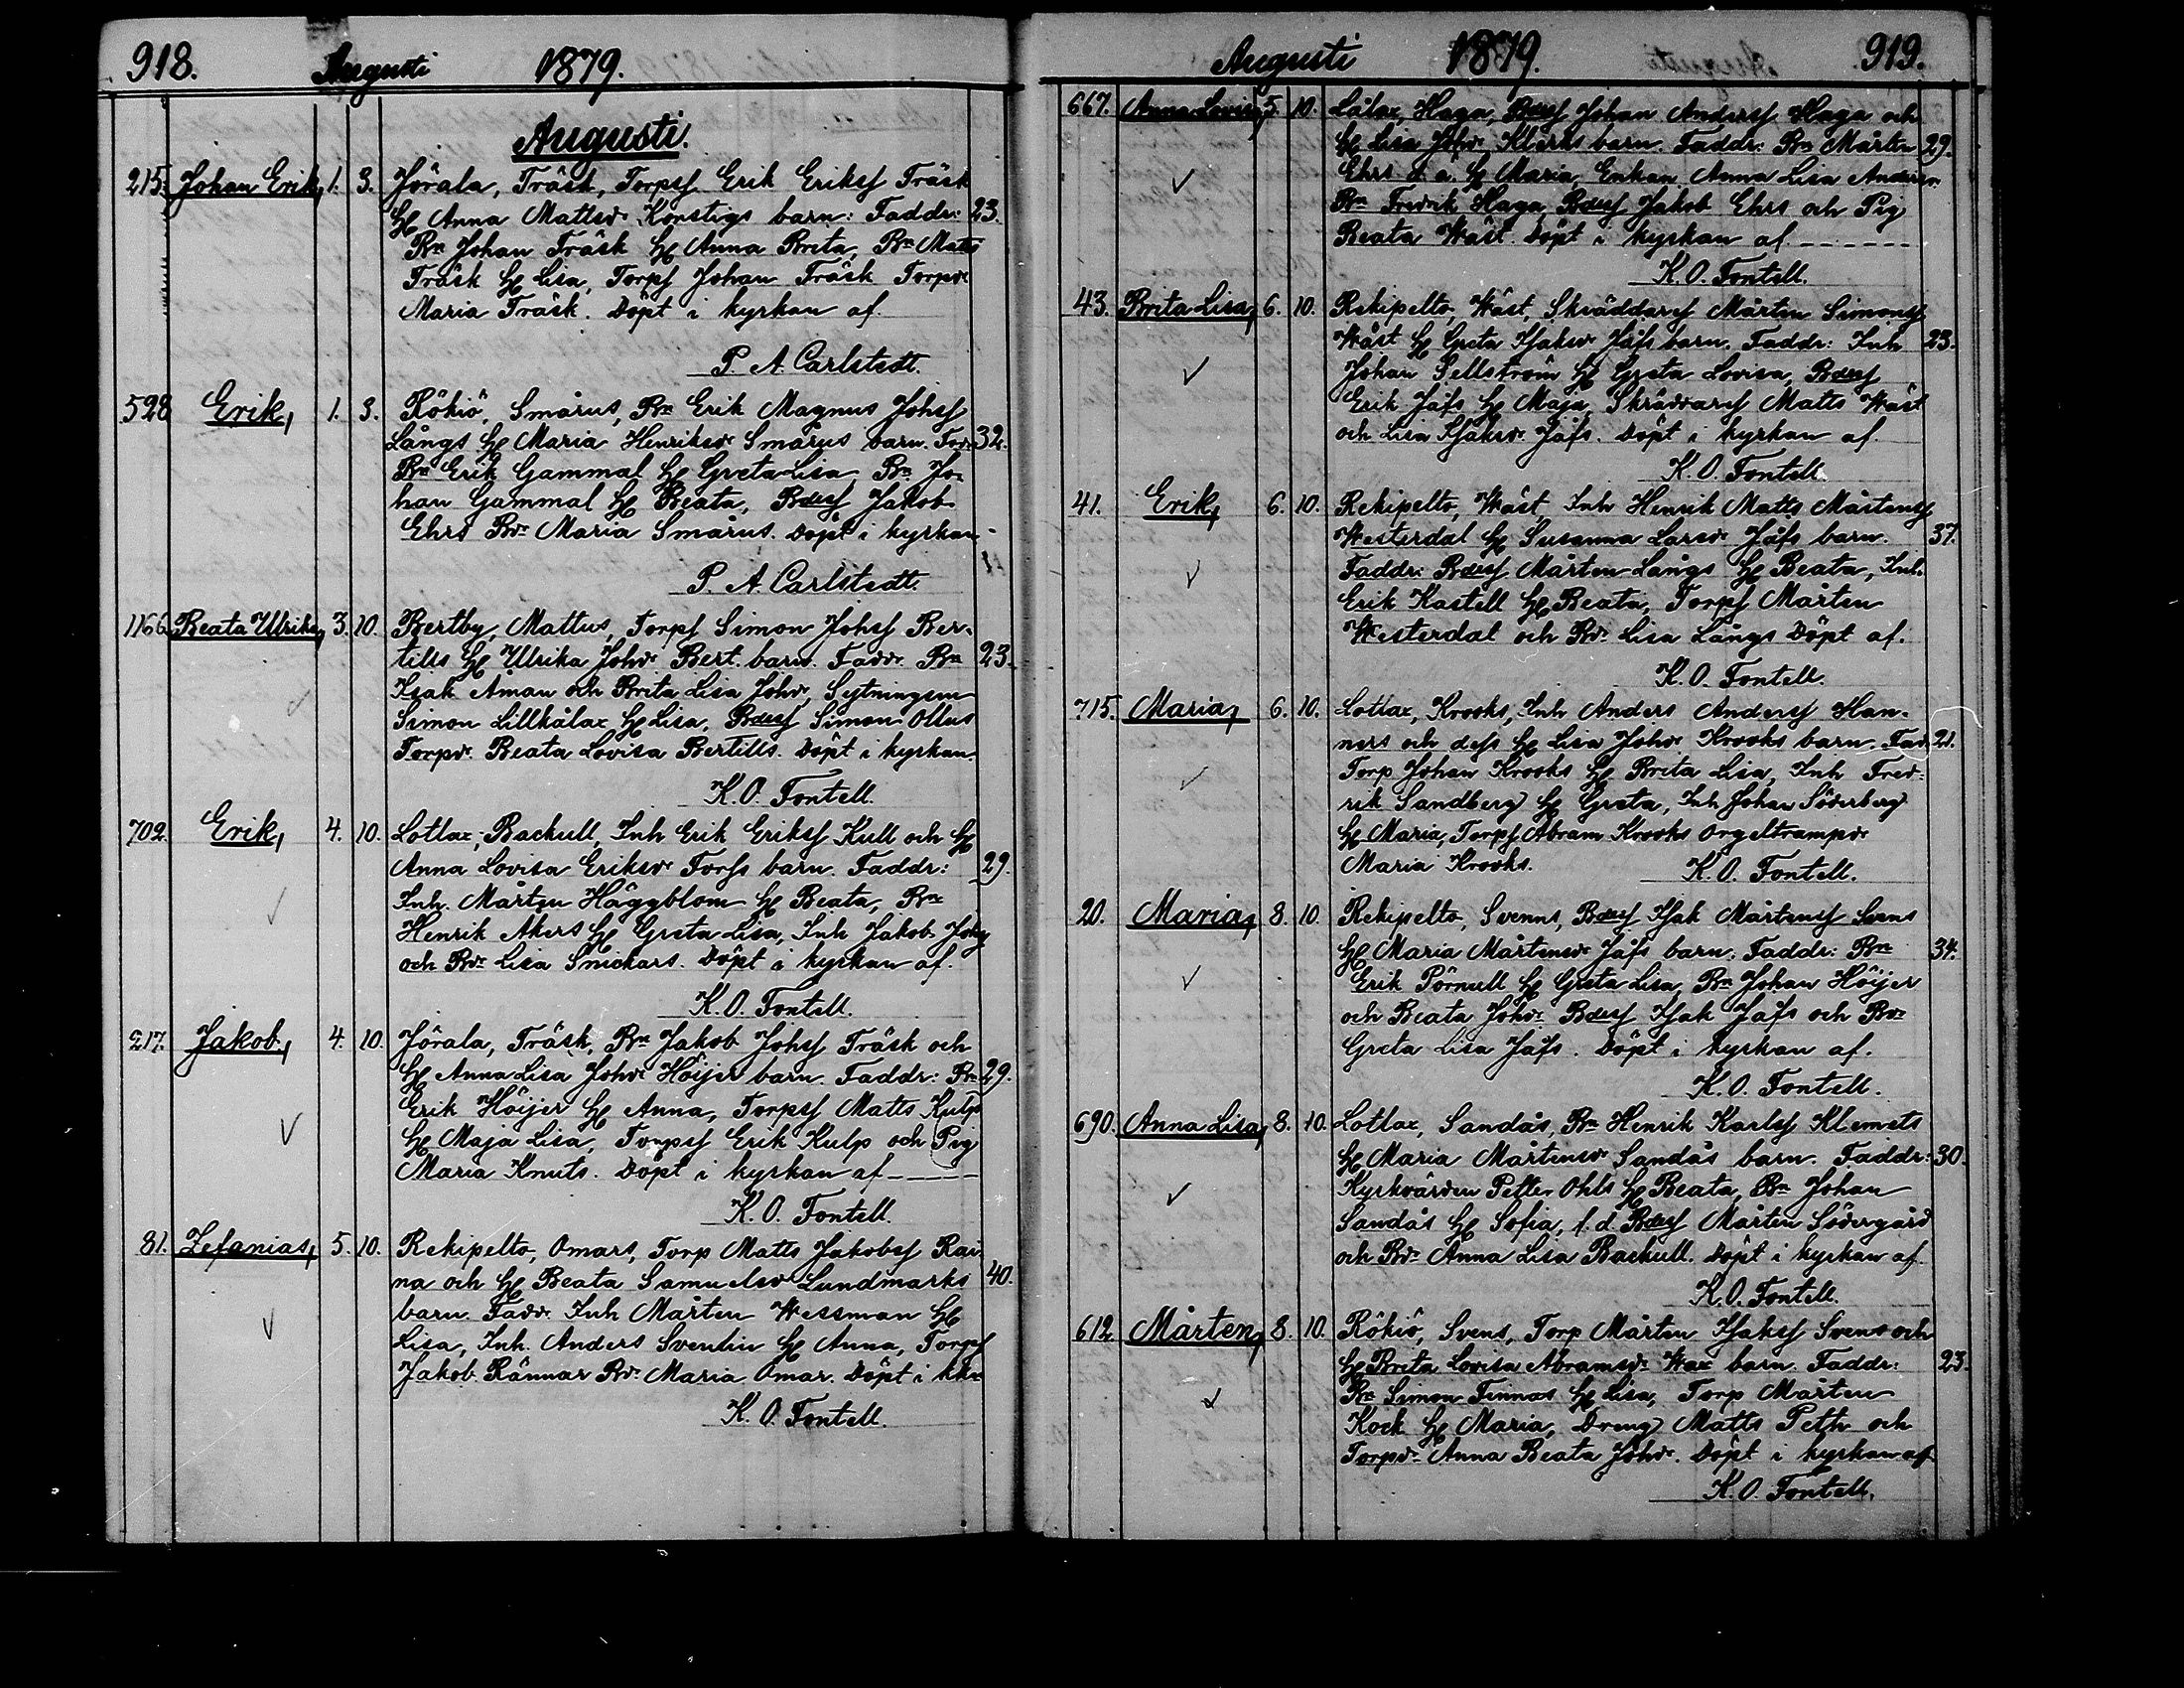 918. Augusti 1879.
Augusti.
215. Johan Erik, 1. 3. Jörala, Träsk, Torpsf Erik Eriksf Träsk
H. Anna Mattsdr Konstigs barn: Faddr: 23.
Bn Johan Träsk H. Anna Brita, Bn Matts
Träsk H. Lisa, Torpsf Johan Träsk Torpdr
Maria Träsk. Döpt i kyrkan af.
P. A. Carlstedt.
528 Erik, 1. 3. Rökiö, Smärus, Bn Erik Magnus Johsf
Långs H. Maria Henriksdr Smärus barn. Fadr 32.
Bn Erik Gammal H. Greta Lisa, Bn Jo-
han Gammal H. Beata, Bdesf Jakob
Ehrs Bdr Maria Smärus. Döpt i kyrkan
P. A. Carlstedt.
1166 Beata Ulrika, 3. 10. Bertby, Mattus, Torpf Simon Johsf Ber-
tills H. Ulrika Johdr Bert. barn. Fadr. Bn 23.
Isak Åman och Brita Lisa Johdr, Sytningsm
Simon Lillkålax H. Lisa, Bdesf Simon Ollus
Torpdr. Beata Lovisa Bertills. Döpt i kyrkan.
K. O. Fontell.
702. Erik, 4. 10. Lotlax, Backull, Inh Erik Eriksf Kull och H.
Anna Lovisa Eriksdr Forss barn. Faddr: 29.
Inh. Mårten Häggblom H. Beata, Bn
Henrik Akers H. Greta Lisa, Inh Jakob Johsf
och Bdr Lisa Snickars. Döpt i kyrkan af.
K. O. Fontell.
217. Jakob, 4. 10. Jörala, Träsk, Bn Jakob Johsf Träsk och
H. Anna Lisa Johdr Höijer barn. Faddr: Bn 29.
Erik Höijer H. Anna, Torpsf Matts Kulp
H. Maja Lisa, Torpsf Erik Kulp och Pig
Maria Knuts. Döpt i kyrkan af -----
K. O. Fontell.
81. Zefanias, 5. 10. Rekipelto, Omars, Torp Matts Jakobsf Rai-
na och H. Beata Samuelsdr Lundmarks 40.
barn. Fadr. Inh Mårten Wessman H.
Lisa, Inh. Anders Sventin H. Anna, Torpf
Jakob Rännar Bdr. Maria Omar. Döpt i kkn
K. O. Fontell.
Augusti 1879. 919.
667. Anna Lovisa, 5. 10. Lålax, Haga, Bdesf Johan Andersf Haga och
H. Lisa Johdr. Klärks barn. Faddr: Bn Mårten 29.
Ehrs d. ä. H. Maria, Enkan Anna Lisa Andersn.
Bn Fredrik Haga, Bdesf Jakob Ehrs och Pig
Beata Wäst. Döpt i kyrkan af ------
K. O. Fontell.
43. Brita Lisa, 6. 10. Rekipelto, Wäst, Skräddaresf Mårten Simonsf
Wäst H. Greta Isaksdr Jåfs barn. Faddr: Inh 23.
Johan Sellström H. Greta Lovisa, Bdesf
Erik Jåfs H. Maja, Skräddaresf Matts Wäst
och Lisa Isaksdr. Jåfs. Döpt i kyrkan af.
K. O. Fontell.
41. Erik, 6. 10. Rekipelto, Wäst Inh Henrik Matts Mårtensf
Westerdal H. Susanna Larsdr Jåfs barn. 37.
Faddr: Bdesf Mårten Långs H. Beata, Inh.
Erik Kastell H. Beata, Torpf Mårten
Westerdal och Bdr. Lisa Långs Döpt af.
K. O. Fontell.
715. Maria, 6. 10. Lotlax, Krooks, Inh Anders Andersf Han-
ners och dess H. Lisa Johdr Krooks barn. Fadr 21.
Torp Johan Krooks H. Brita Lisa, Inh Fred-
rik Sandberg H. Greta, Inh Johan Söderberg
H. Maria, Torpf Abram Krooks Orgeltrampdr
Maria Krooks. K. O. Fontell.
20. Maria, 8. 10. Rekipelto, Svenns, Bdesf Isak Mårtensf Svens
H. Maria Mårtensdr Jåfs barn. Faddr: Bn 34.
Erik Pörnull H. Greta Lisa, Bn Johan Höijer
och Beata Johdr. Bdesf Isak Jåfs och Bdr
Greta Lisa Jåfs. Döpt i kyrkan af.
K. O. Fontell.
690. Anna Lisa, 8. 10. Lotlax, Sandås, Bn Henrik Karlsf Klemets
H. Maria Mårtensdr Sandås barn. Faddr: 30.
Kyrkvärden Petter Ohls H. Beata, Bn Johan
Sandås H. Sofia, f. d. Bdesf Mårten Södergård
och Bdr Anna Lisa Backull. Döpt i kyrkan af.
K. O. Fontell.
612 Mårten, 8. 10. Rökiö, Svens, Torp Mårten Isaksf Svens och
H. Brita Lovisa Abramsdr. Wax barn. Faddr: 23.
Bn Simon Finnas H. Lisa, Torp Mårten
Kock H. Maria, Dreng Matts Peth och
Torpdr. Anna Beata Johdr. Döpt i kyrkan af
K. O. Fontell.